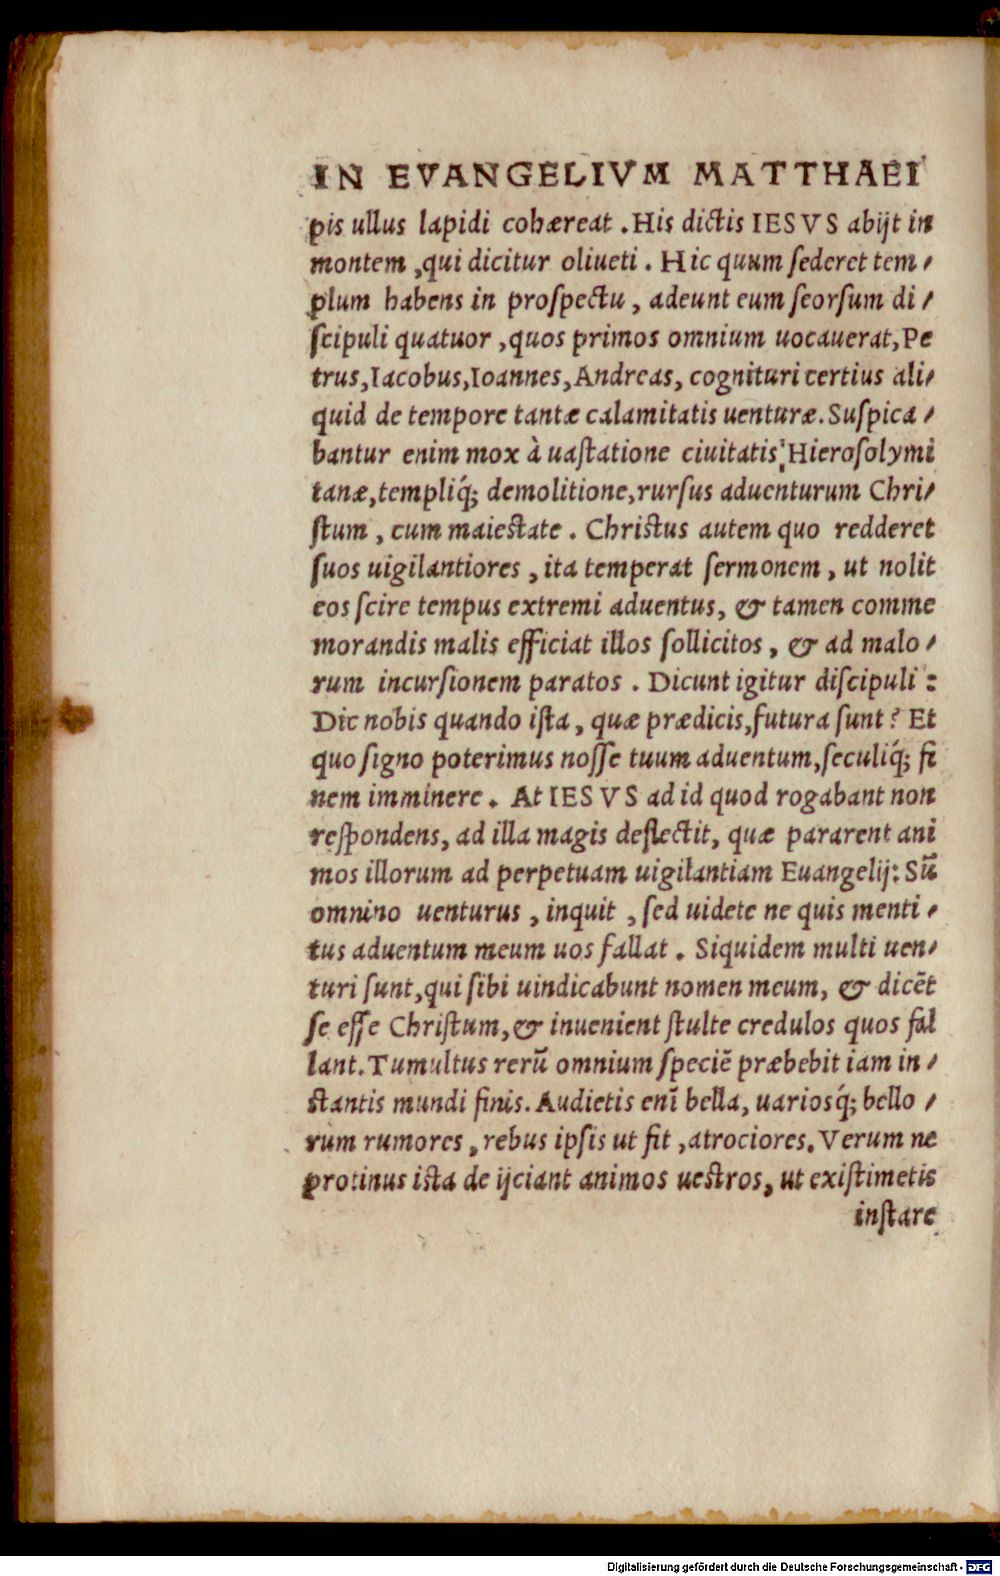 IN EVANGELIVM MATTHAEI
pis ullus lapidi cohæreat . His dictis IESVS abijt in
montem , qui dicitur oliueti . Hic quum sederet tem⸗
plum habens in prospectu , adeunt eum seorsum di⸗
scipuli quatuor , quos primos omnium uocauerat, Pe
trus, Iacobus, Ioannes, Andreas, cognituri certius ali⸗
quid de tempore tantæ calamitatis uenturæ. Suspica⸗
bantur enim mox à uastatione ciuitatis Hierosolymi
tanæ, templiq́; demolitione, rursus aduenturum Chri⸗
stum , cum maiestate . Christus autem quo redderet
suos uigilantiores , ita temperat sermonem , ut nolit
eos scire tempus extremi aduentus, & tamen comme
morandis malis efficiat illos sollicitos , & ad malo⸗
rum incursionem paratos . Dicunt igitur discipuli :
Dic nobis quando ista , quæ prædicis, futura sunt ? Et
quo signo poterimus nosse tuum aduentum, seculiq́; fi
nem imminere . At IESVS ad id quod rogabant non
respondens, ad illa magis deflectit, quæ pararent ani
mos illorum ad perpetuam uigilantiam Euangelij: Sū
omnino uenturus , inquit , sed uidete ne quis menti⸗
tus aduentum meum uos fallat . Siquidem multi uen⸗
turi sunt, qui sibi uindicabunt nomen meum, & dicēt
se esse Christum, & inuenient stulte credulos quos fal
lant. Tumultus rerū omnium speciē præbebit iam in⸗
stantis mundi finis. Audietis enī bella, uariosq́; bello⸗
rum rumores , rebus ipsis ut fit , atrociores. Verum ne
protinus ista de ijciant animos uestros, ut existimetis
instare
Digitalisierung gefördert durch die Deutsche Forschungsgemeinschaft - DFG